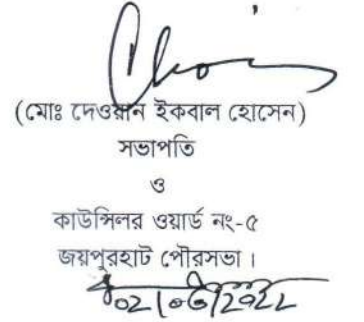 (মোঃ দেওয়ান ইকবাল হোসেন)
সভাপতি
ও
কাউন্সিলর ওয়ার্ড নং-৫
জয়পুরহাট পৌরসভা।